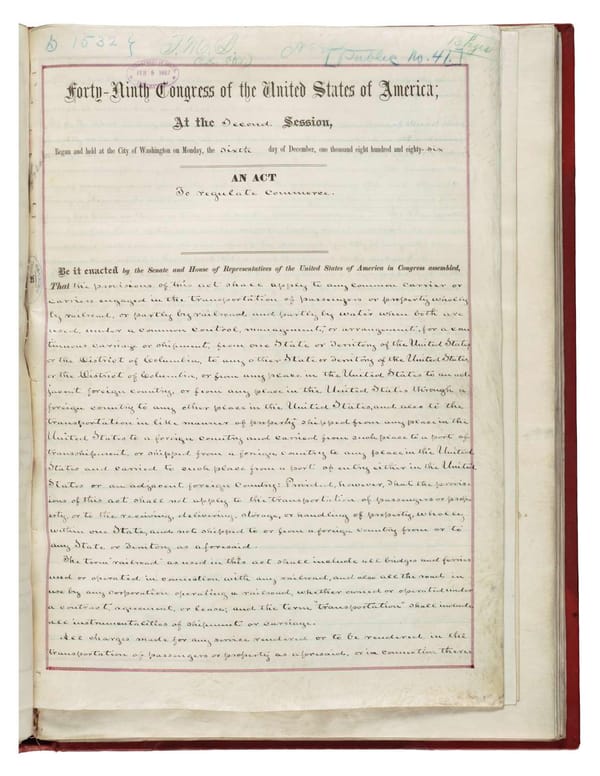 S 1532
[Public No. 41.]
FEB 5 1887
Forty-Ninth Congress of the United States of America;
At the Second Session,
Begun and held at the City of Washington on Monday, the sixth day of December, one thousand eight hundred and eighty-six
AN ACT
To regulate commerce.
Be it enacted by the Senate and House of Representatives of the United States of America in Congress assembled,
That the provisions of this act shall apply to any common carrier or
carriers engaged in the transportation of passengers or property wholly
by railroad, or partly by railroad and partly by water when both are
used, under a common control, management, or arrangement, for a con
tinuous carriage or shipment, from one State or Territory of the United States,
or the District of Columbia, to any other State or Territory of the United States,
or the District of Columbia, or from any place in the United States to an ad
jacent foreign country, or from any place in the United States through a
foreign country to any other place in the United States, and also to the
transportation in like manner of property shipped from any place in the
United States to a foreign country and carried from such place to a port of
transshipment, or shipped from a foreign country to any place in the United
States and carried to such place from a port of entry either in the United
States or an adjacent foreign country: Provided, however, That the provis
ions of this act shall not apply to the transportation of passengers or prop
erty, or to the receiving, delivering, storage, or handling of property, wholly
within one State, and not shipped to or from a foreign country from or to
any State or Territory as aforesaid.
The term "railroad" as used in this act shall include all bridges and ferries
used or operated in connection with any railroad, and also all the road in
use by any corporation operating a railroad, whether owned or operated under
a contract, agreement, or lease; and the term "transportation" shall include
all instrumentalities of shipment or carriage.
All charges made for any service rendered or to be rendered in the
transportation of passengers or property as aforesaid, or in connection there